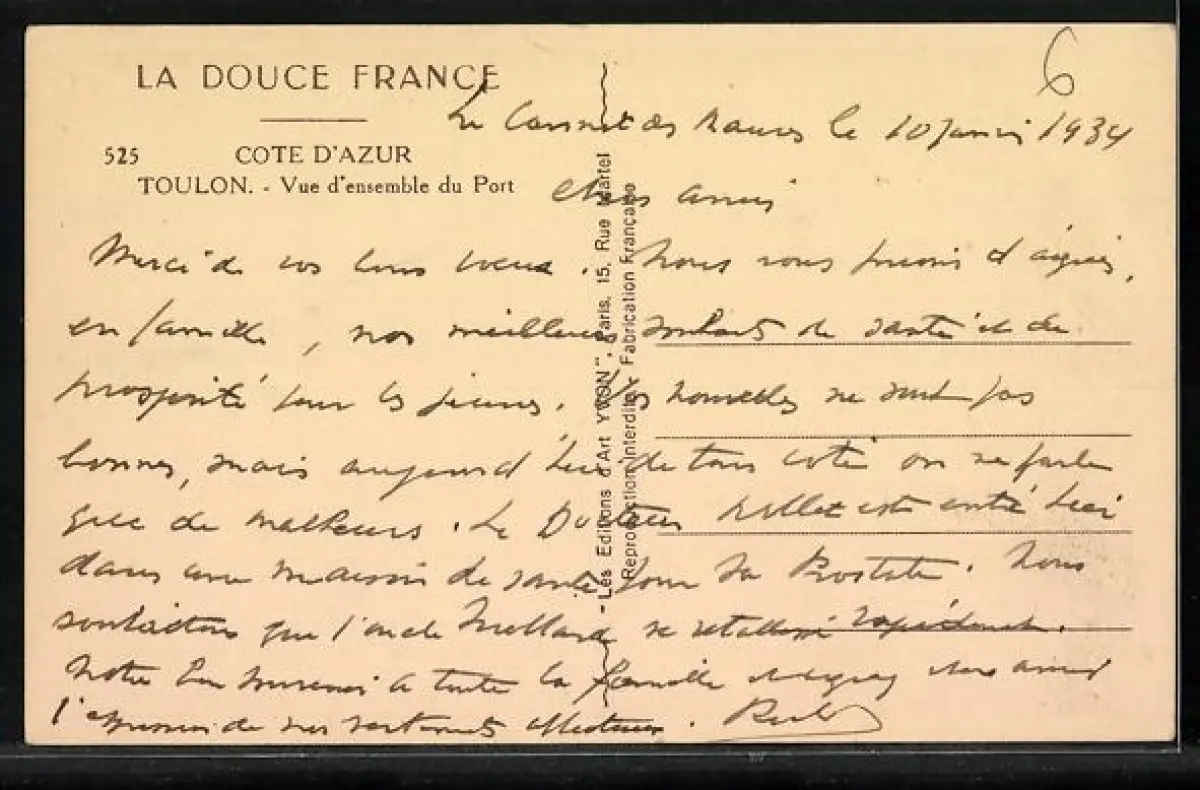 LA DOUCE FRANCE
6
Le Cannet des Maures le 10 janvier 1934
525 COTE D'AZUR
TOULON. - Vue d'ensemble du Port
Chers amis
Merci de vos bons voeux. Nous vous prions d'agréer,
en famille, nos meilleurs souhaits de santé et de
prospérité pour les jeunes. Vos nouvelles ne sont pas
bonnes, mais aujourd'hui de tous coté on ne parle
que de malheurs. Le Docteur est entré hier
dans une maison de santé pour sa Prostate. Nous
souhaitons que l'oncle se rapidement.
Notre bon souvenir à toute la famille chers amis
l'expression de nos sentiments affectueux.
- Les Editions d'Art YVON", Paris, 15, Rue Martel
Reproduction Interdite - Fabrication Française